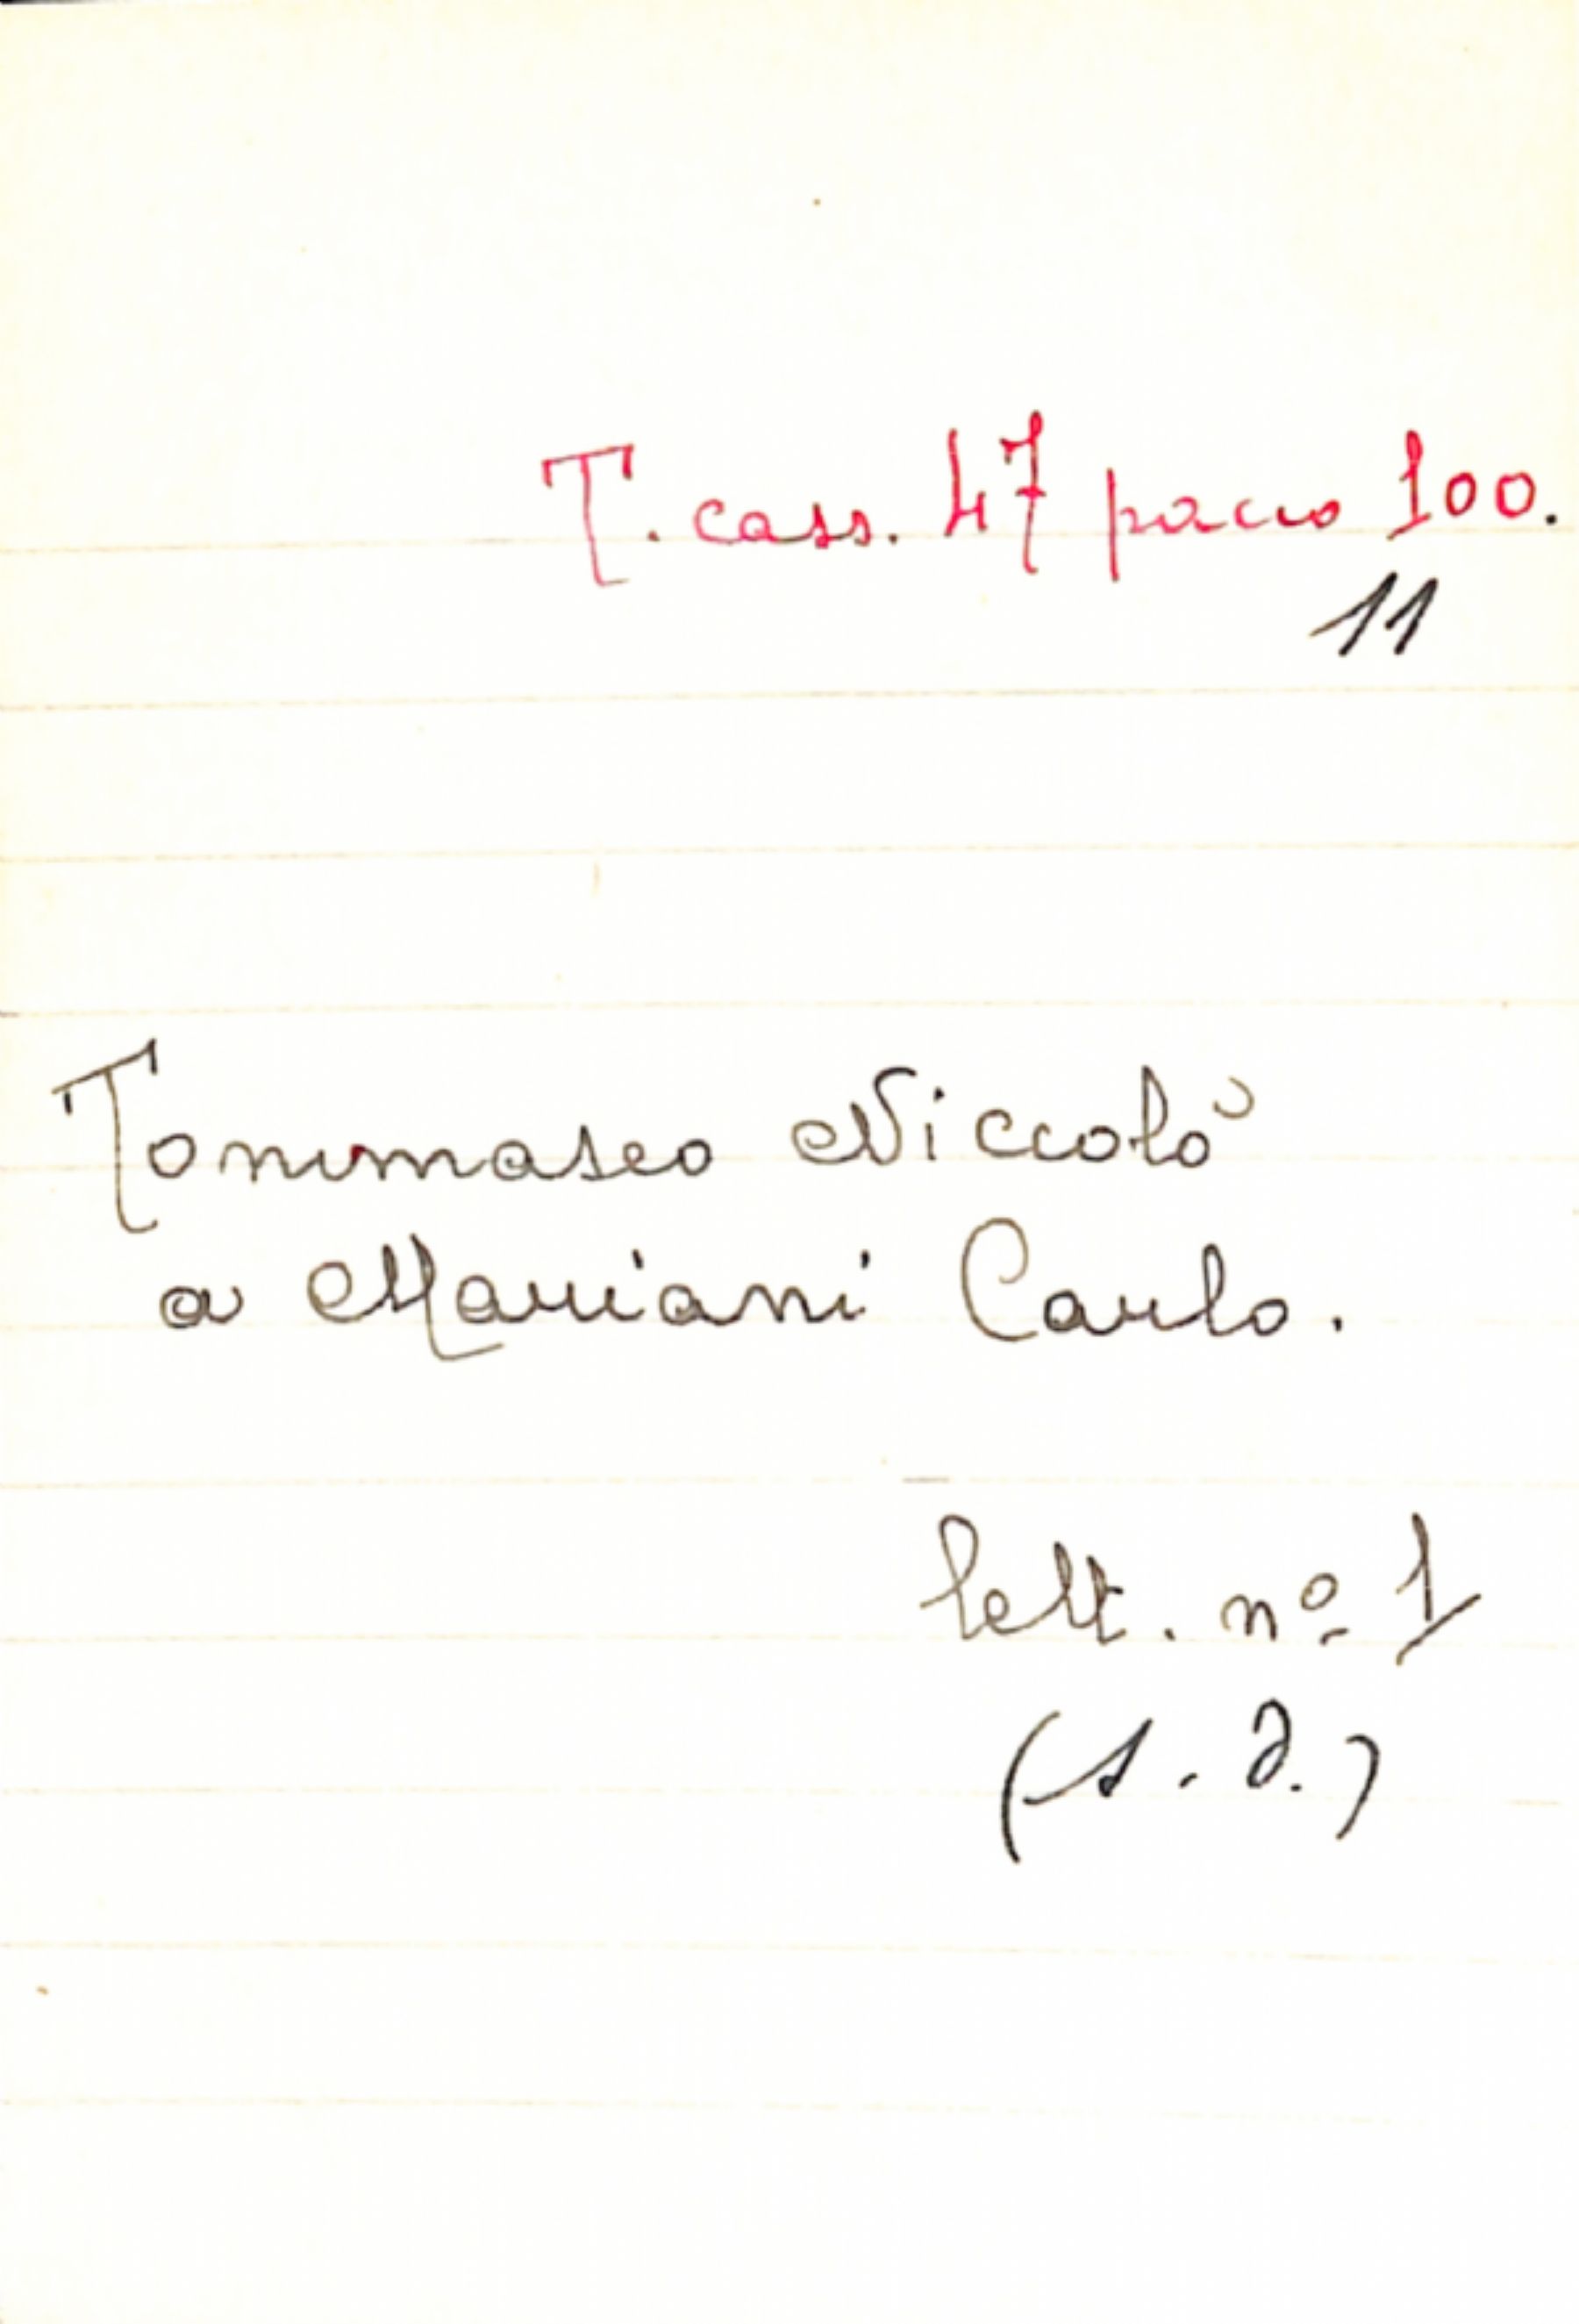 T. cass. 47 pacco 100.
11
Tommaseo Niccolò
a Mariani Carlo.
lett. nº 1
(s. d.)